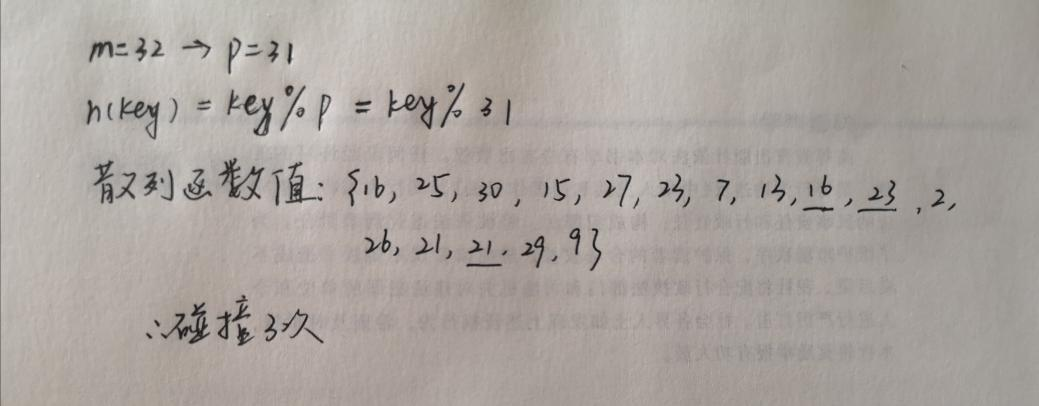 m=32 → p=31
h(key) = key%p = key%31
散列函数值:{16, 25, 30, 15, 27, 23, 7, 13, 16, 23, 2,
26, 21, 21, 29, 9}
∴碰撞3次